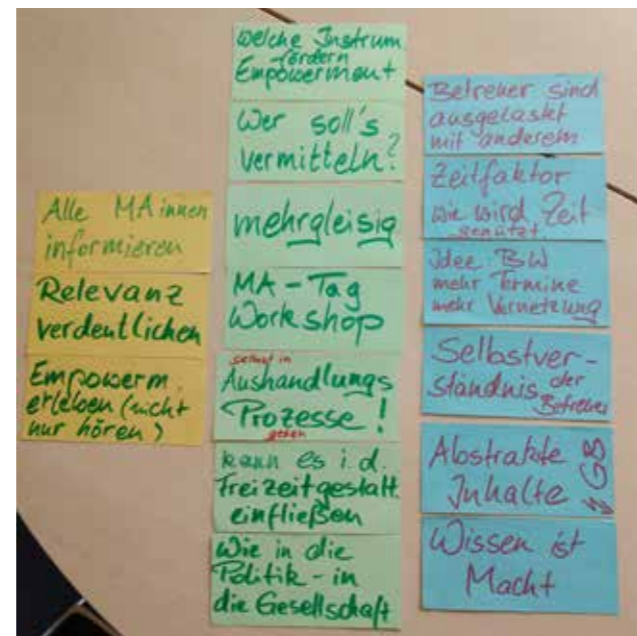 Alle MAinnen
informieren
Relevanz
verdeutlichen
Empowerm.
erleben (nicht
nur hören)
Welche Instrum.
fördern
Empowerment
Wer soll's
vermitteln?
mehrgleisig
MA - Tag
Workshop
selbst in
Aushandlungs
Prozesse!
gehen
kann es i.d.
Freizeitgestalt.
einfließen
Wie in die
Politik - in
die Gesellschaft
Betreuer sind
ausgelastet
mit anderem
Zeitfaktor
wie wird Zeit
genützt
Idee BW
mehr Termine
mehr Vernetzung
Selbstver-
ständnis der
Betreuer
Abstrakte
Inhalte GB
Wissen ist
Macht